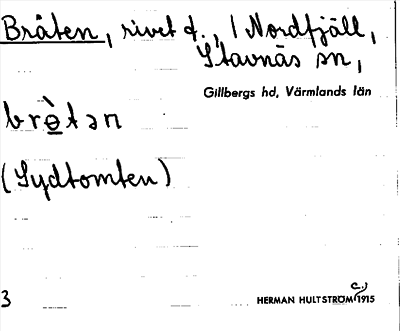 Bråten, rivet t., 1 Nordfjäll,
Stavnäs sn,
Gillbergs hd, Värmlands län
brò̱tən
(Sydtomten)
3
HERMAN HULTSTRÖM c.) 1915